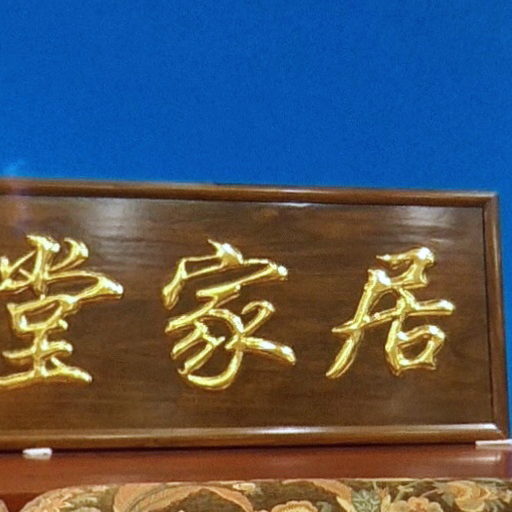 堂家居